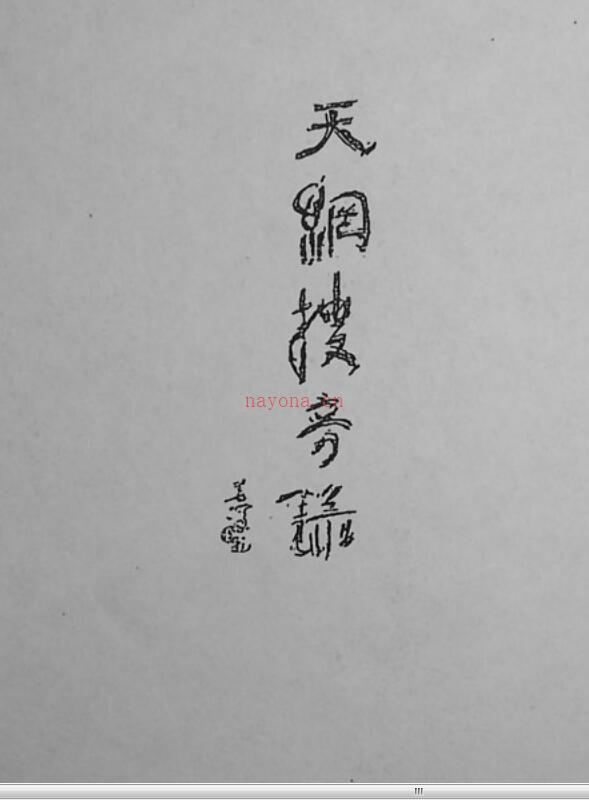 天網搜奇錄
nayona.cn